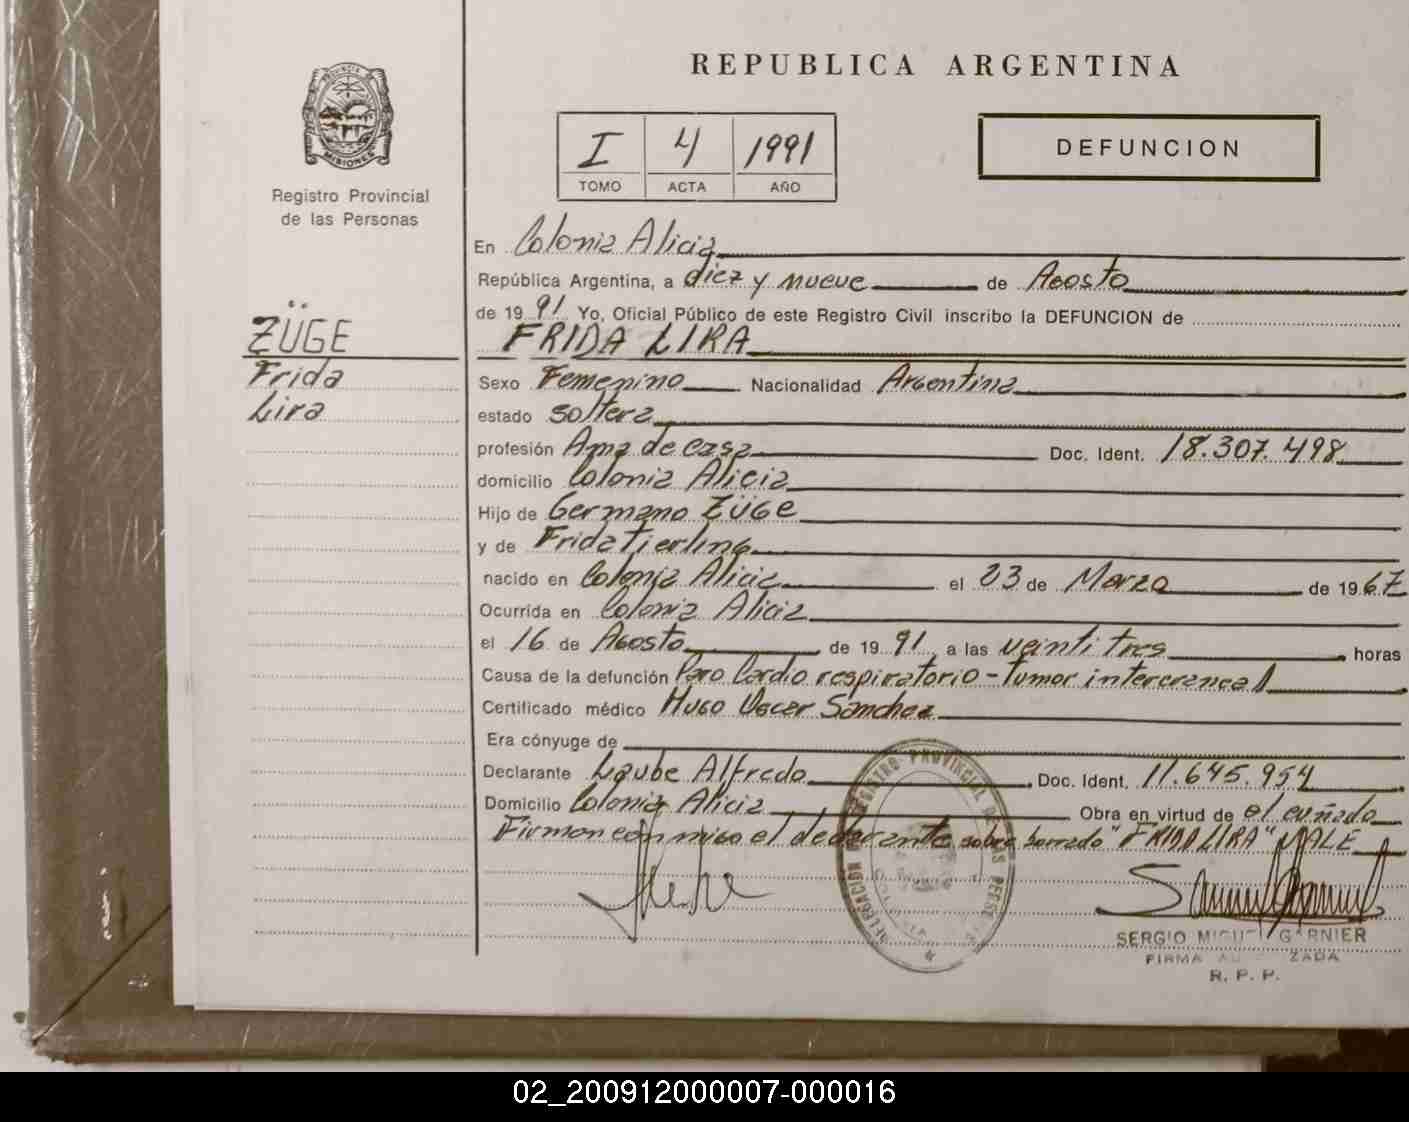 REPUBLICA ARGENTINA
PROVINCIA DE
MISIONES
Registro Provincial
de las Personas
I 4 1991
TOMO ACTA AÑO
DEFUNCION
ZÜGE
Frida
Lira
En Colonia Alicia
República Argentina, a diez y nueve de Agosto
de 1991 Yo, Oficial Público de este Registro Civil inscribo la DEFUNCION de
FRIDA LIRA
Sexo Femenino Nacionalidad Argentina
estado soltera
profesión Ama de casa Doc. Ident. 18.307.498
domicilio Colonia Alicia
Hijo de Germano ZÜGE
y de Frida Tierling
nacido en Colonia Alicia el 23 de Marzo de 1967
Ocurrida en Colonia Alicia
el 16 de Agosto de 1991 a las veinti tres horas
Causa de la defunción Paro Cardio respiratorio - Tumor intercraneal
Certificado médico Hugo Oscar Sanchez
Era cónyuge de
Declarante Laube Alfredo Doc. Ident. 11.645.954
Domicilio Colonia Alicia Obra en virtud de el cuñado
Firman conmigo el declarante sobre borrado "FRIDA LIRA" VALE
DELEGACION REGISTRO PROVINCIAL DE LAS PERSONAS
SERGIO MIGUEL GARNIER
FIRMA AUTORIZADA
R. P. P.
02_200912000007-000016